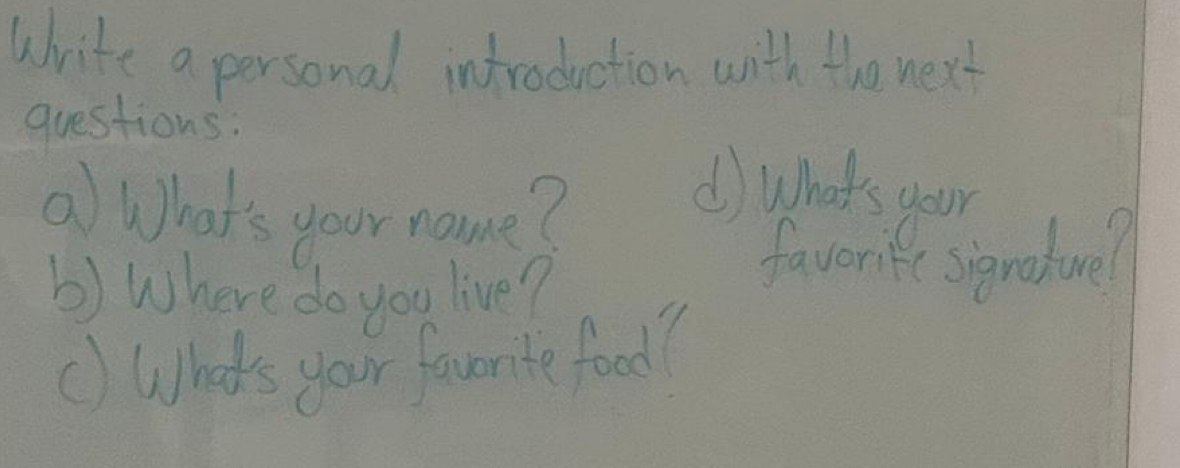 Write a personal introduction with the next
questions:
a) What's your name?
b) Where do you live?
c) What's your favorite food?
d) What's your
favorite signature?